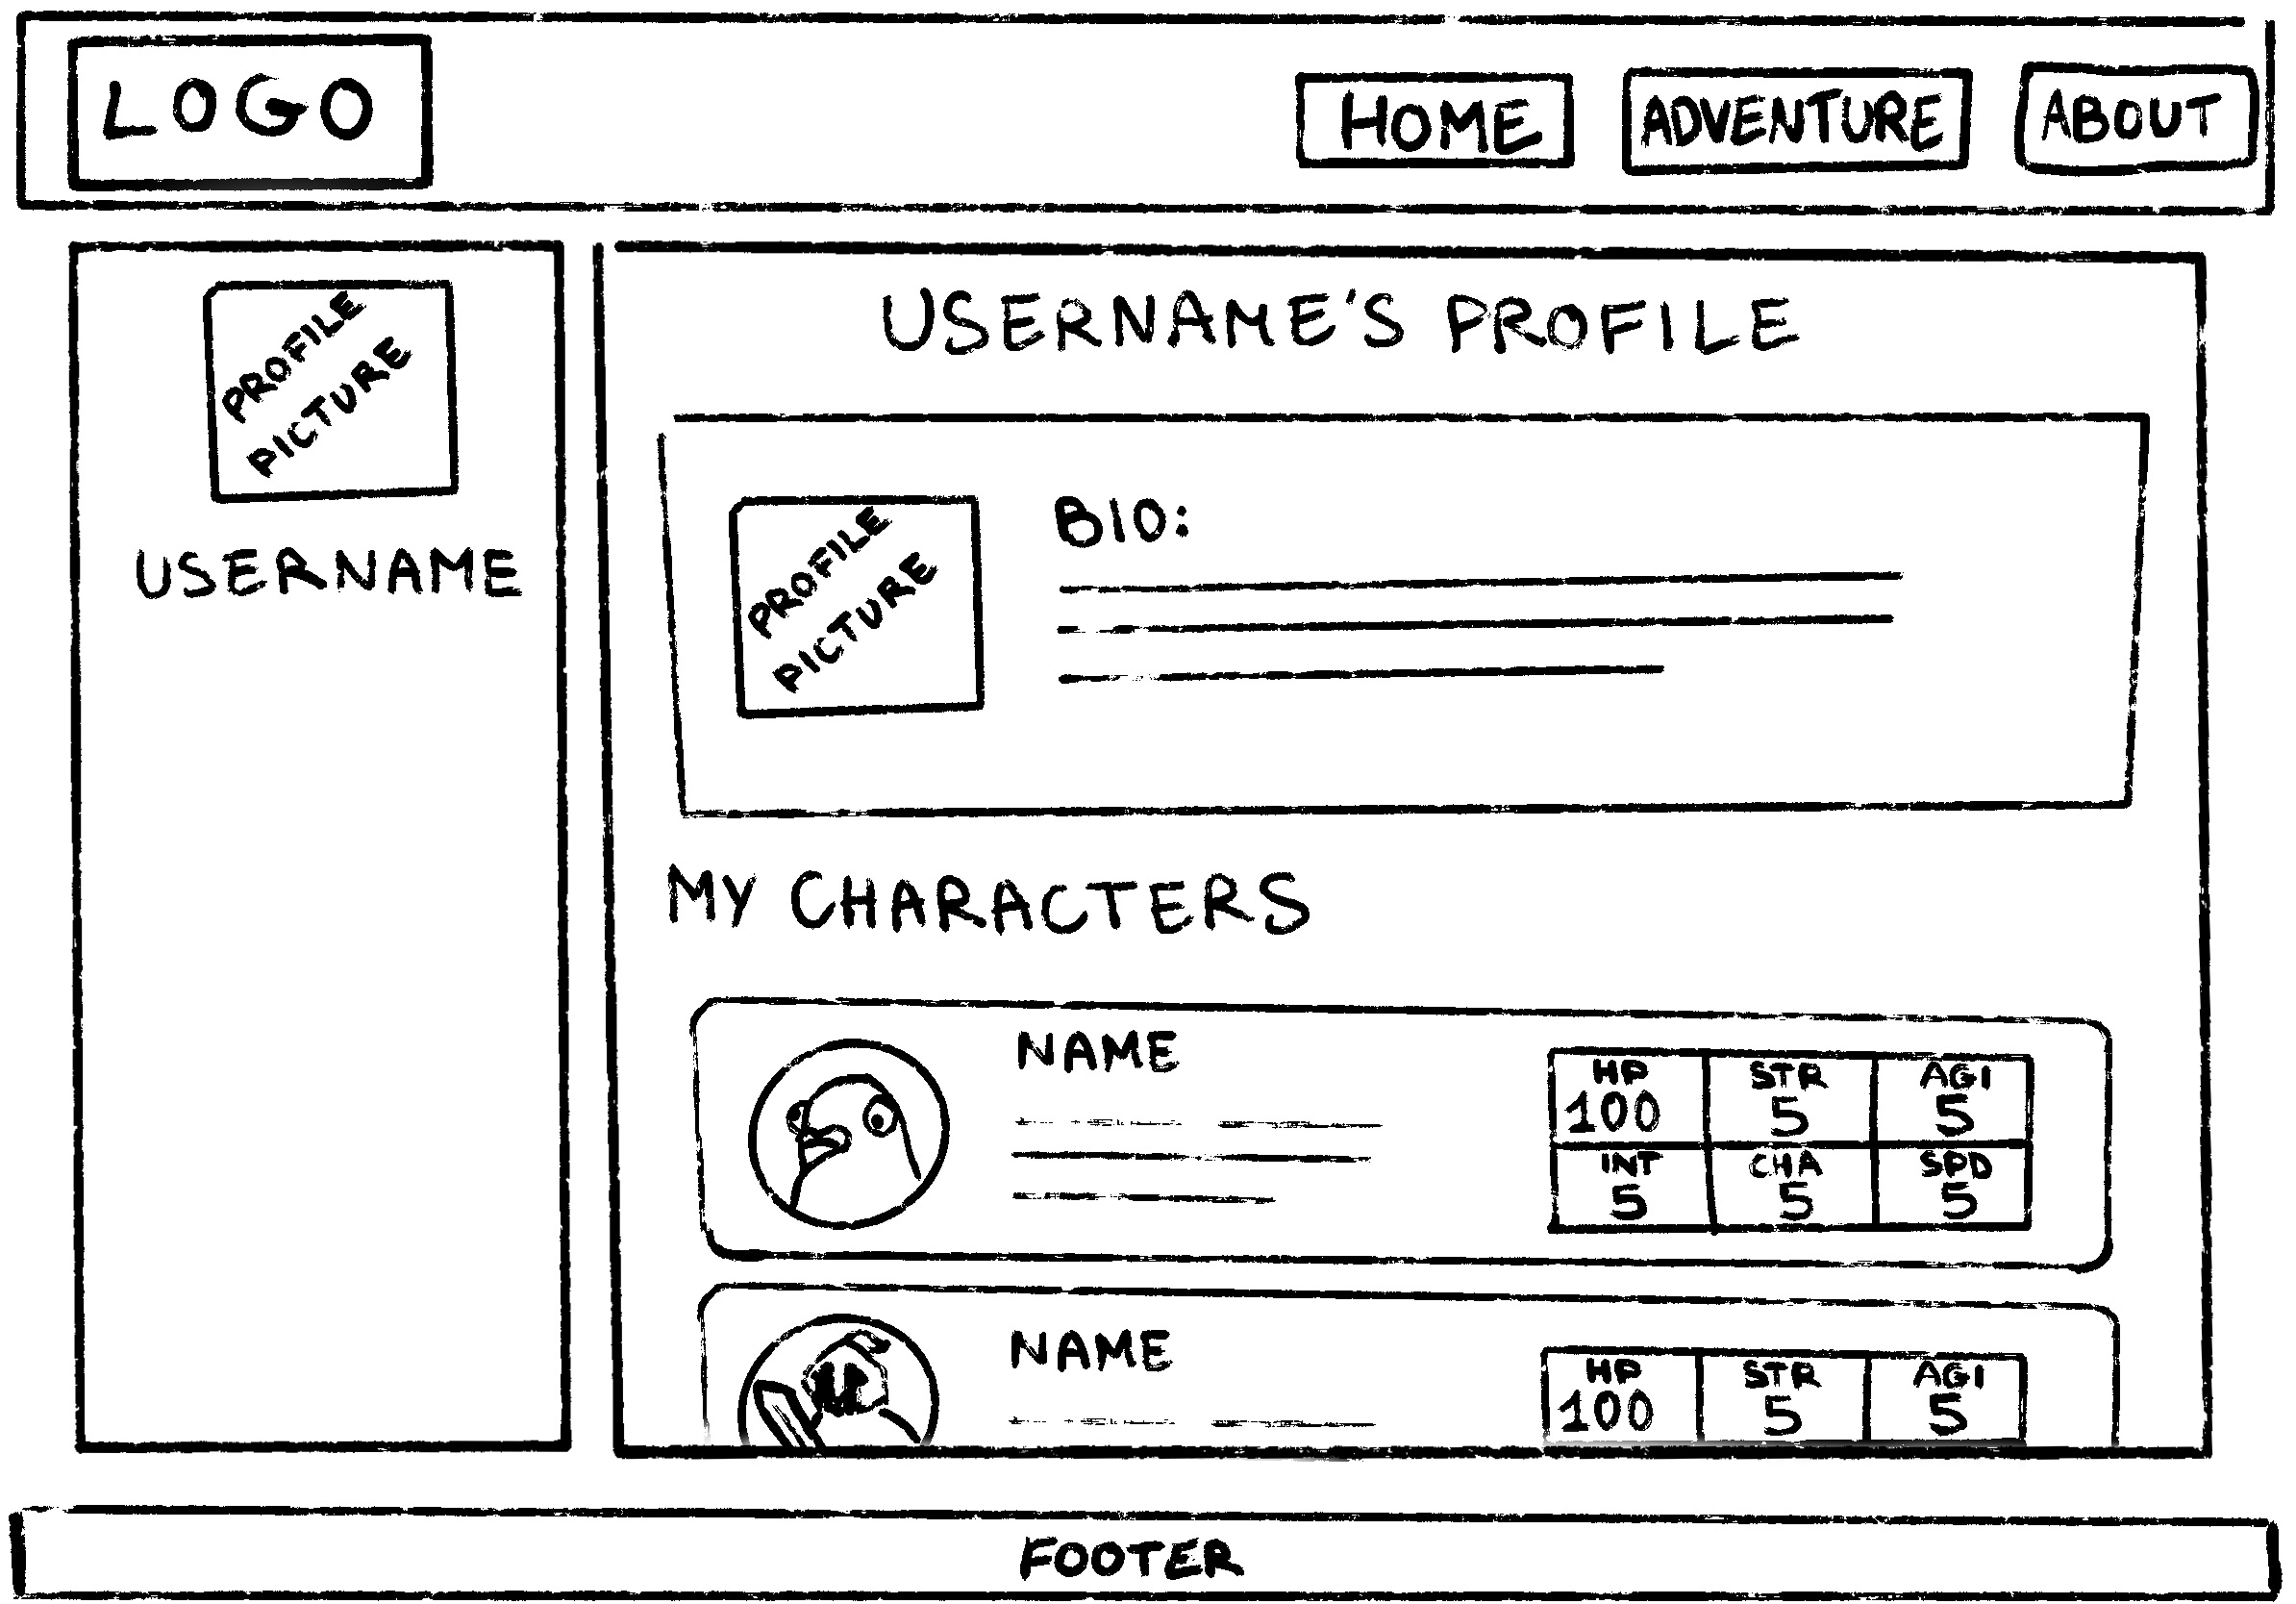 LOGO
HOME ADVENTURE ABOUT
PROFILE
PICTURE
USERNAME
USERNAME'S PROFILE
PROFILE
PICTURE
BIO:
MY CHARACTERS
NAME
HP STR AGI
100 5 5
INT CHA SPD
5 5 5
NAME
HP STR AGI
100 5 5
FOOTER